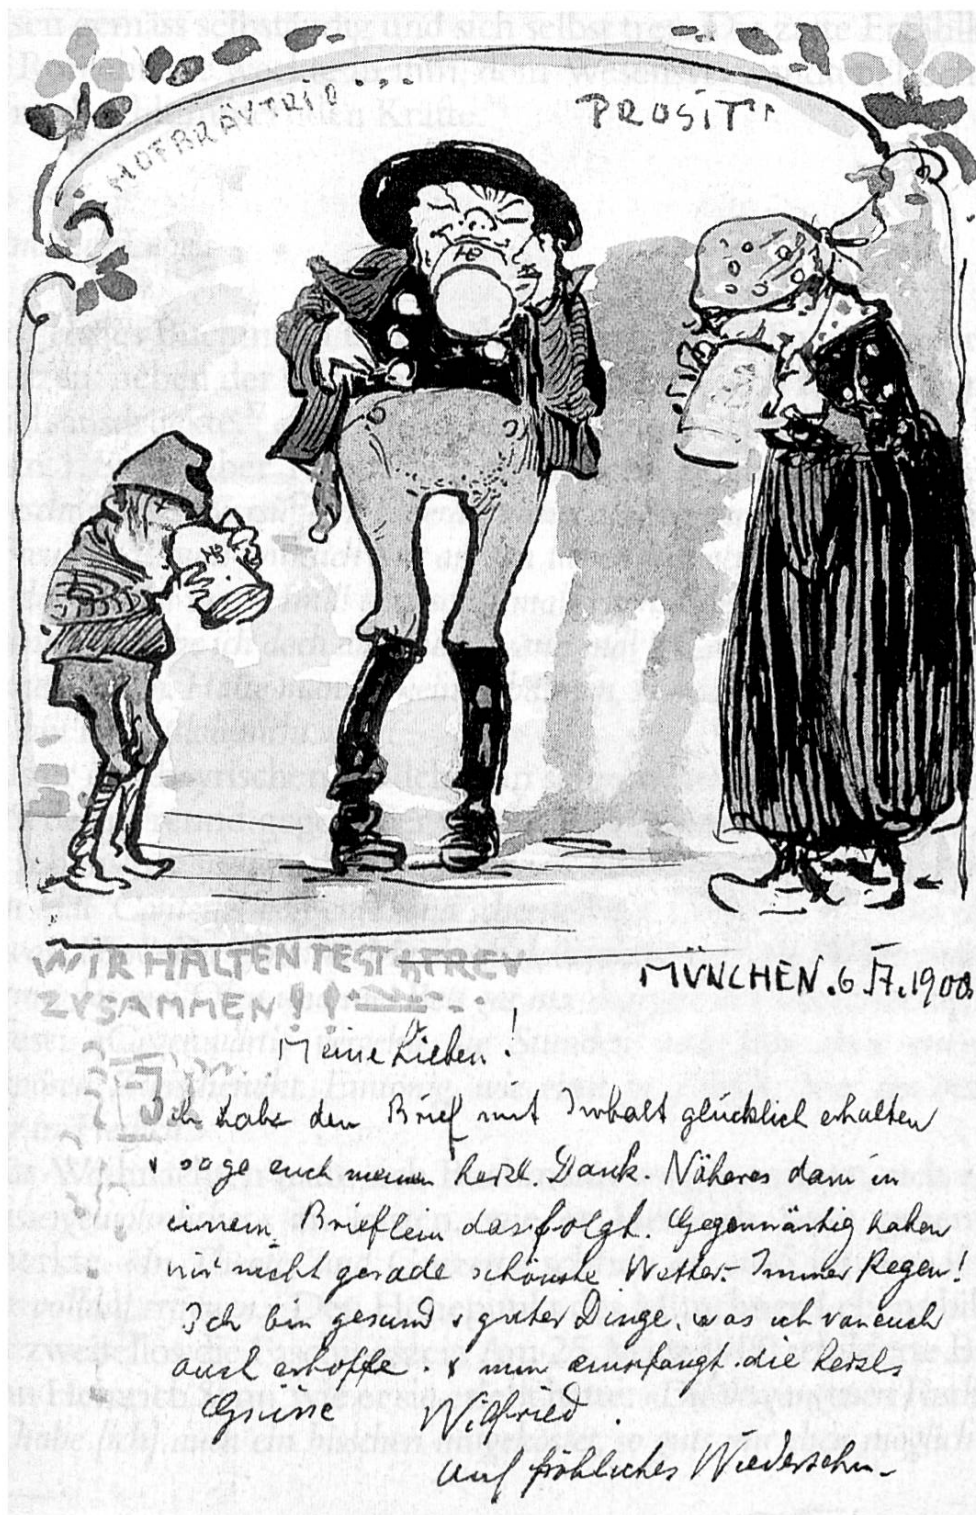 HOFBRÄVTRIO...
PROSIT!
HB
HB
WIR HALTEN FEST & TREV
ZVSAMMEN!!
MÜNCHEN. 6. IV. 1900
Meine Lieben!
Ich habe den Brief mit Inhalt glücklich erhalten
& sage euch meinen herzl Dank. Näheres dann in
einem Brieflein das folgt. Gegenwärtig haben
wir nicht gerade schönste Wetter. Immer Regen!
Ich bin gesund & guter Dinge, was ich von euch
auch erhoffe. & nun empfangt die herzls
Grüsse Wilfried.
Auf fröhliches Wiedersehn